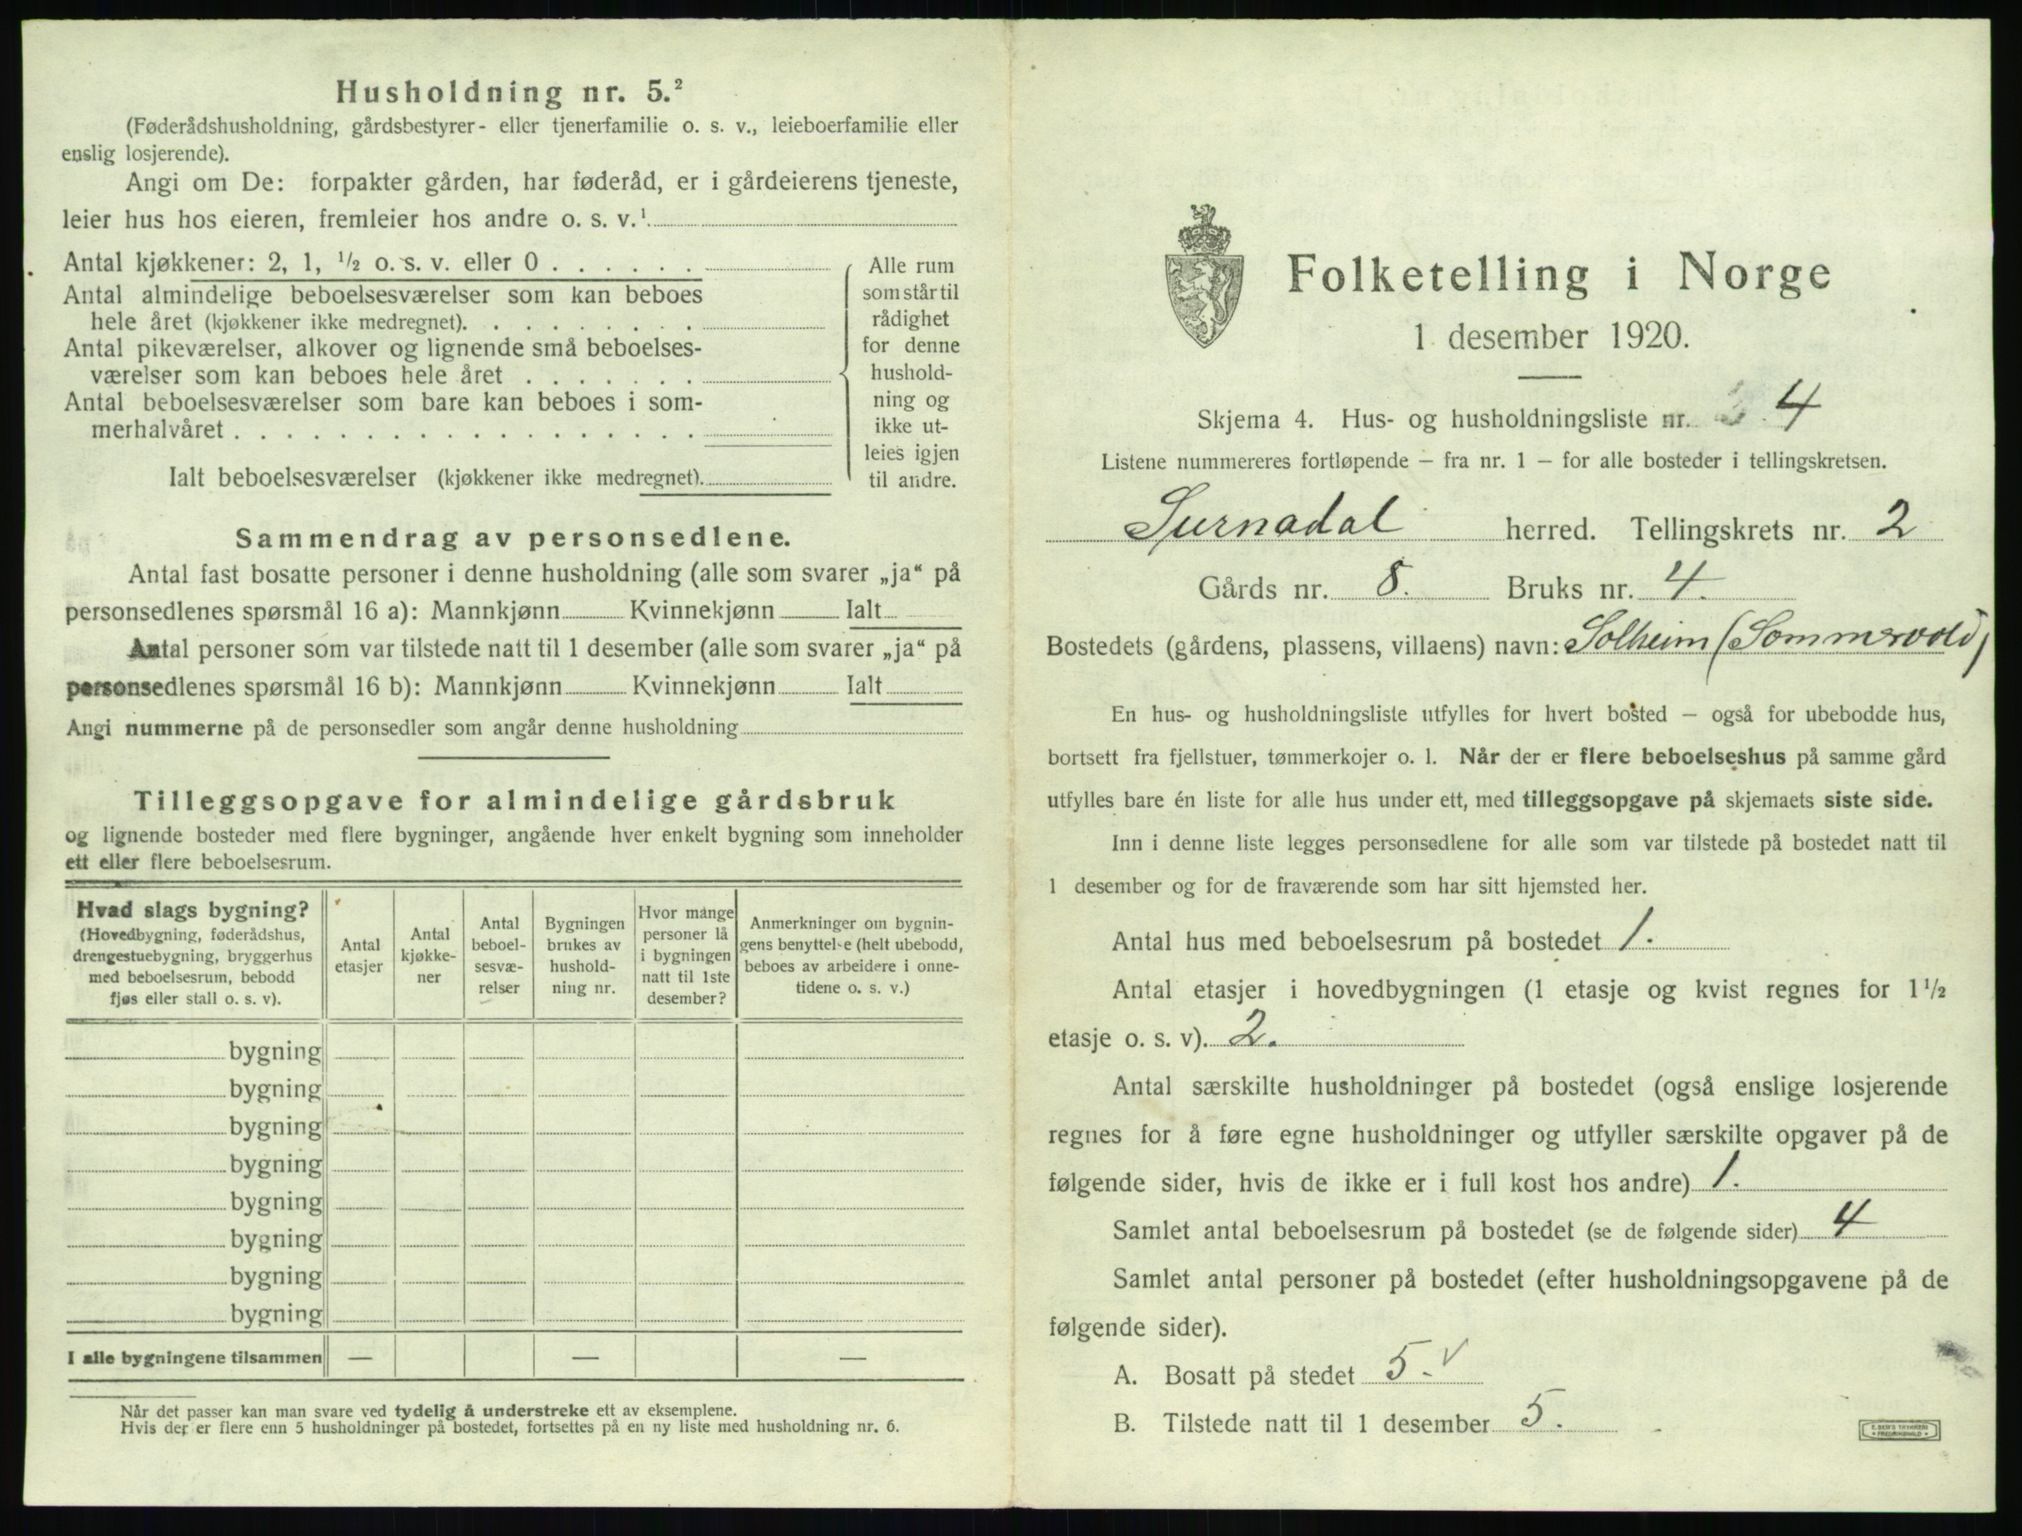 Husholdning nr. 5.²
(Føderådshusholdning, gårdsbestyrer- eller tjenerfamilie o. s. v., leieboerfamilie eller
enslig losjerende).
Angi om De: forpakter gården, har føderåd, er i gårdeierens tjeneste,
leier hus hos eieren, fremleier hos andre o. s. v.¹
Antal kjøkkener: 2, 1, ½ o. s. v. eller 0 . . . . . .
Antal almindelige beboelsesværelser som kan beboes
hele året (kjøkkener ikke medregnet). . . . . . . . .
Antal pikeværelser, alkover og lignende små beboelses-
værelser som kan beboes hele året . . . . . . .
Antal beboelsesværelser som bare kan beboes i som-
merhalvåret . . . . . . . . . . . . . . . . . .
Ialt beboelsesværelser (kjøkkener ikke medregnet).
Alle rum
som står til
rådighet
for denne
hushold-
ning og
ikke ut-
leies igjen
til andre.
Sammendrag av personsedlene.
Antal fast bosatte personer i denne husholdning (alle som svarer „ja“ på
personsedlenes spørsmål 16 a): Mannkjønn Kvinnekjønn Ialt
Antal personer som var tilstede natt til 1 desember (alle som svarer „ja“ på
personsedlenes spørsmål 16 b): Mannkjønn Kvinnekjønn Ialt
Angi nummerne på de personsedler som angår denne husholdning
Tilleggsopgave for almindelige gårdsbruk
og lignende bosteder med flere bygninger, angående hver enkelt bygning som inneholder
ett eller flere beboelsesrum.
Hvad slags bygning?
(Hovedbygning, føderådshus,
drengestuebygning, bryggerhus
med beboelsesrum, bebodd
fjøs eller stall o. s. v).
Antal
etasjer
Antal
kjøkke-
ner
Antal
beboel-
sesvæ-
relser
Bygningen
brukes av
hushold-
ning nr.
Hvor mange
personer lå
i bygningen
natt til 1ste
desember?
Anmerkninger om bygnin-
gens benyttelse (helt ubebodd,
beboes av arbeidere i onne-
tidene o. s. v.)
bygning
bygning
bygning
bygning
bygning
bygning
bygning
bygning
I alle bygningene tilsammen — — —
Når det passer kan man svare ved tydelig å understreke ett av eksemplene.
Hvis der er flere enn 5 husholdninger på bostedet, fortsettes på en ny liste med husholdning nr. 6.
Folketelling i Norge
1 desember 1920.
Skjema 4. Hus- og husholdningsliste nr. 4
Listene nummereres fortløpende – fra nr. 1 – for alle bosteder i tellingskretsen.
Surnadal herred. Tellingskrets nr. 2
Gårds nr. 8. Bruks nr. 4.
Bostedets (gårdens, plassens, villaens) navn: Solheim (Sommervold)
En hus- og husholdningsliste utfylles for hvert bosted – også for ubebodde hus,
bortsett fra fjellstuer, tømmerkojer o. l. Når der er flere beboelseshus på samme gård
utfylles bare én liste for alle hus under ett, med tilleggsopgave på skjemaets siste side.
Inn i denne liste legges personsedlene for alle som var tilstede på bostedet natt til
1 desember og for de fraværende som har sitt hjemsted her.
Antal hus med beboelsesrum på bostedet 1.
Antal etasjer i hovedbygningen (1 etasje og kvist regnes for 1½
etasje o. s. v). 2.
Antal særskilte husholdninger på bostedet (også enslige losjerende
regnes for å føre egne husholdninger og utfyller særskilte opgaver på de
følgende sider, hvis de ikke er i full kost hos andre) 1.
Samlet antal beboelsesrum på bostedet (se de følgende sider) 4
Samlet antal personer på bostedet (efter husholdningsopgavene på de
følgende sider).
A. Bosatt på stedet 5. v
B. Tilstede natt til 1 desember 5.